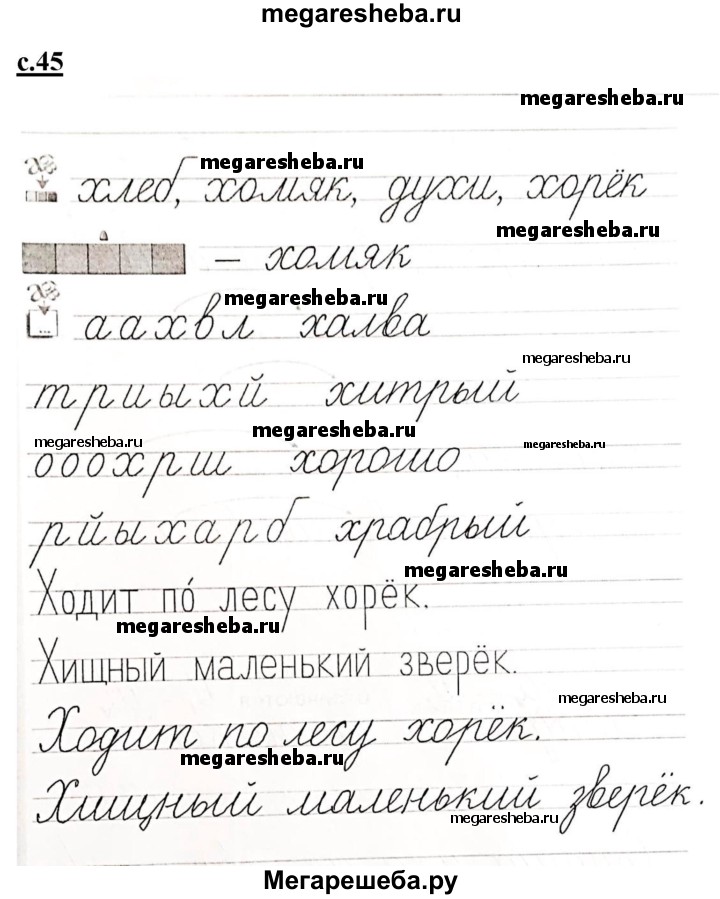 megaresheba.ru
с.45
megaresheba.ru
megaresheba.ru
хлеб, хомяк, духи, хорёк
megaresheba.ru
– хомяк
megaresheba.ru
а а х в л халва
megaresheba.ru
т р и ы х й хитрый
megaresheba.ru
megaresheba.ru
megaresheba.ru
о о о х р ш хорошо
р й ы х а р б храбрый
megaresheba.ru
Ходит по́ лесу хорёк.
megaresheba.ru
Хищный маленький зверёк.
megaresheba.ru
Ходит по лесу хорёк.
megaresheba.ru
Хищный маленький зверёк.
megaresheba.ru
Мегарешеба.ру